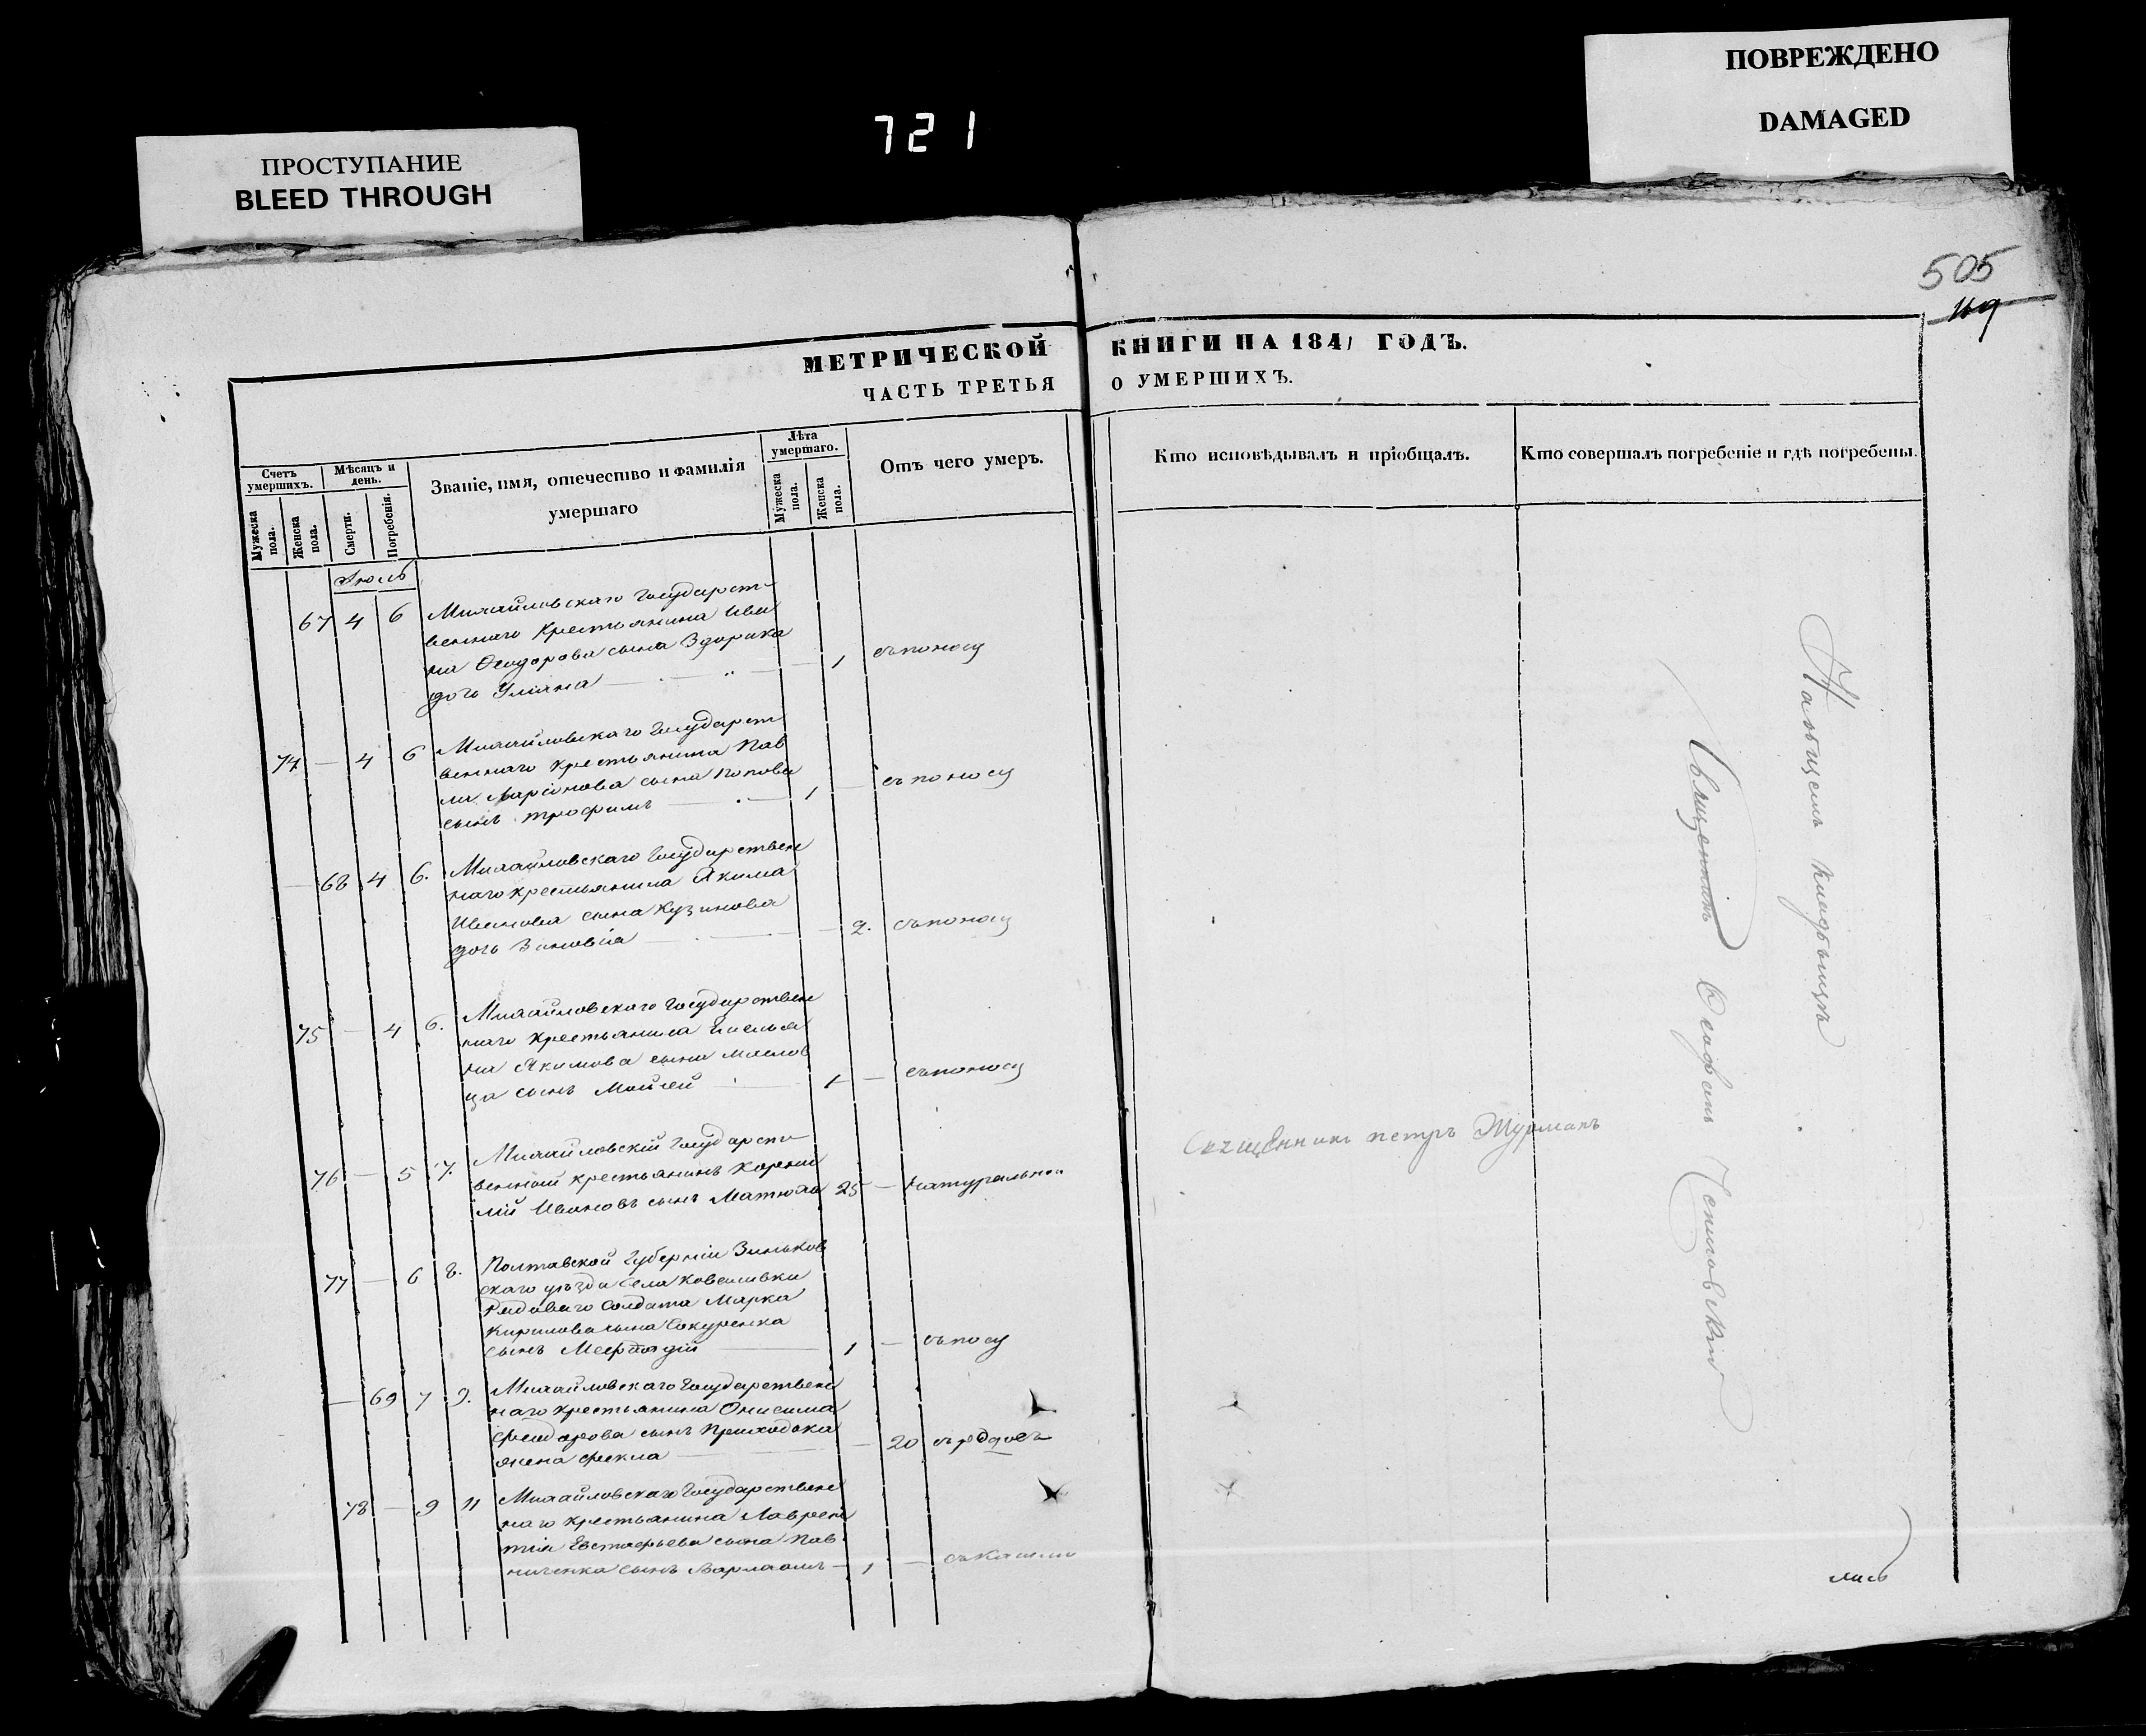 ПОВРЕЖДЕНО
DAMAGED
721
ПРОСТУПАНИЕ
BLEED THROUGH
505
119
МЕТРИЧЕСКОЙ КНИГИ НА 1841 ГОДЪ.
ЧАСТЬ ТРЕТЬЯ О УМЕРШИХЪ.
Счетъ умершихъ.
Мужеска пола.
Женска пола.
Мѣсяцъ и день.
Смерти.
Погребенія.
Званіе, имя, отечество и фамилія
умершаго
Лѣта умершаго.
Мужеска пола.
Женска пола.
Отъ чего умеръ.
Кто исповѣдывалъ и пріобщалъ.
Кто совершалъ погребеніе и гдѣ погребены.
Іюль
67 4 6 Михайловскаго Государст-
веннаго крестьянина Ива
на Феодорова сына Здорика
дочь Уліяна 1 съ поносу
74 — 4 6 Михайловскаго Государст
веннаго крестьянина Пав
ла Ларіонова сына Попова
сынъ Трофимъ — 1 — съ поносу
— 68 4 6. Михайловскаго Государствен
наго крестьянина Якима
Иванова сына Кузинова
дочь Зиновія — 2. съ поносу
75 — 4 6. Михайловскаго Государствен
наго крестьянина Емелья
на Якимова сына
ца сынъ Мойсей 1 — съ поносу
76 — 5 7. Михайловскій Государст-
венный крестьянинъ Корни
лій Ивановъ сынъ 25 — натуральной
Священникъ Петръ Журманъ
77 — 6 8. Полтавской Губерніи Зиньков
скаго уѣзда села Коваливки
Рядоваго Солдата Марка
Кирилова сына Сокуренка
сынъ 1 —
— 69 7 9. Михайловскаго Государствен
наго крестьянина Онисима
Феодорова сынъ Приходька
жена Фекла — 20
78 — 9 11 Михайловскаго Государствен
наго крестьянина Лаврен
тія Евстафьева сына Пав
личенка сынъ Варлаамъ — 1 — съ кашлю
На общемъ кладбищѣ
Священникъ
лись